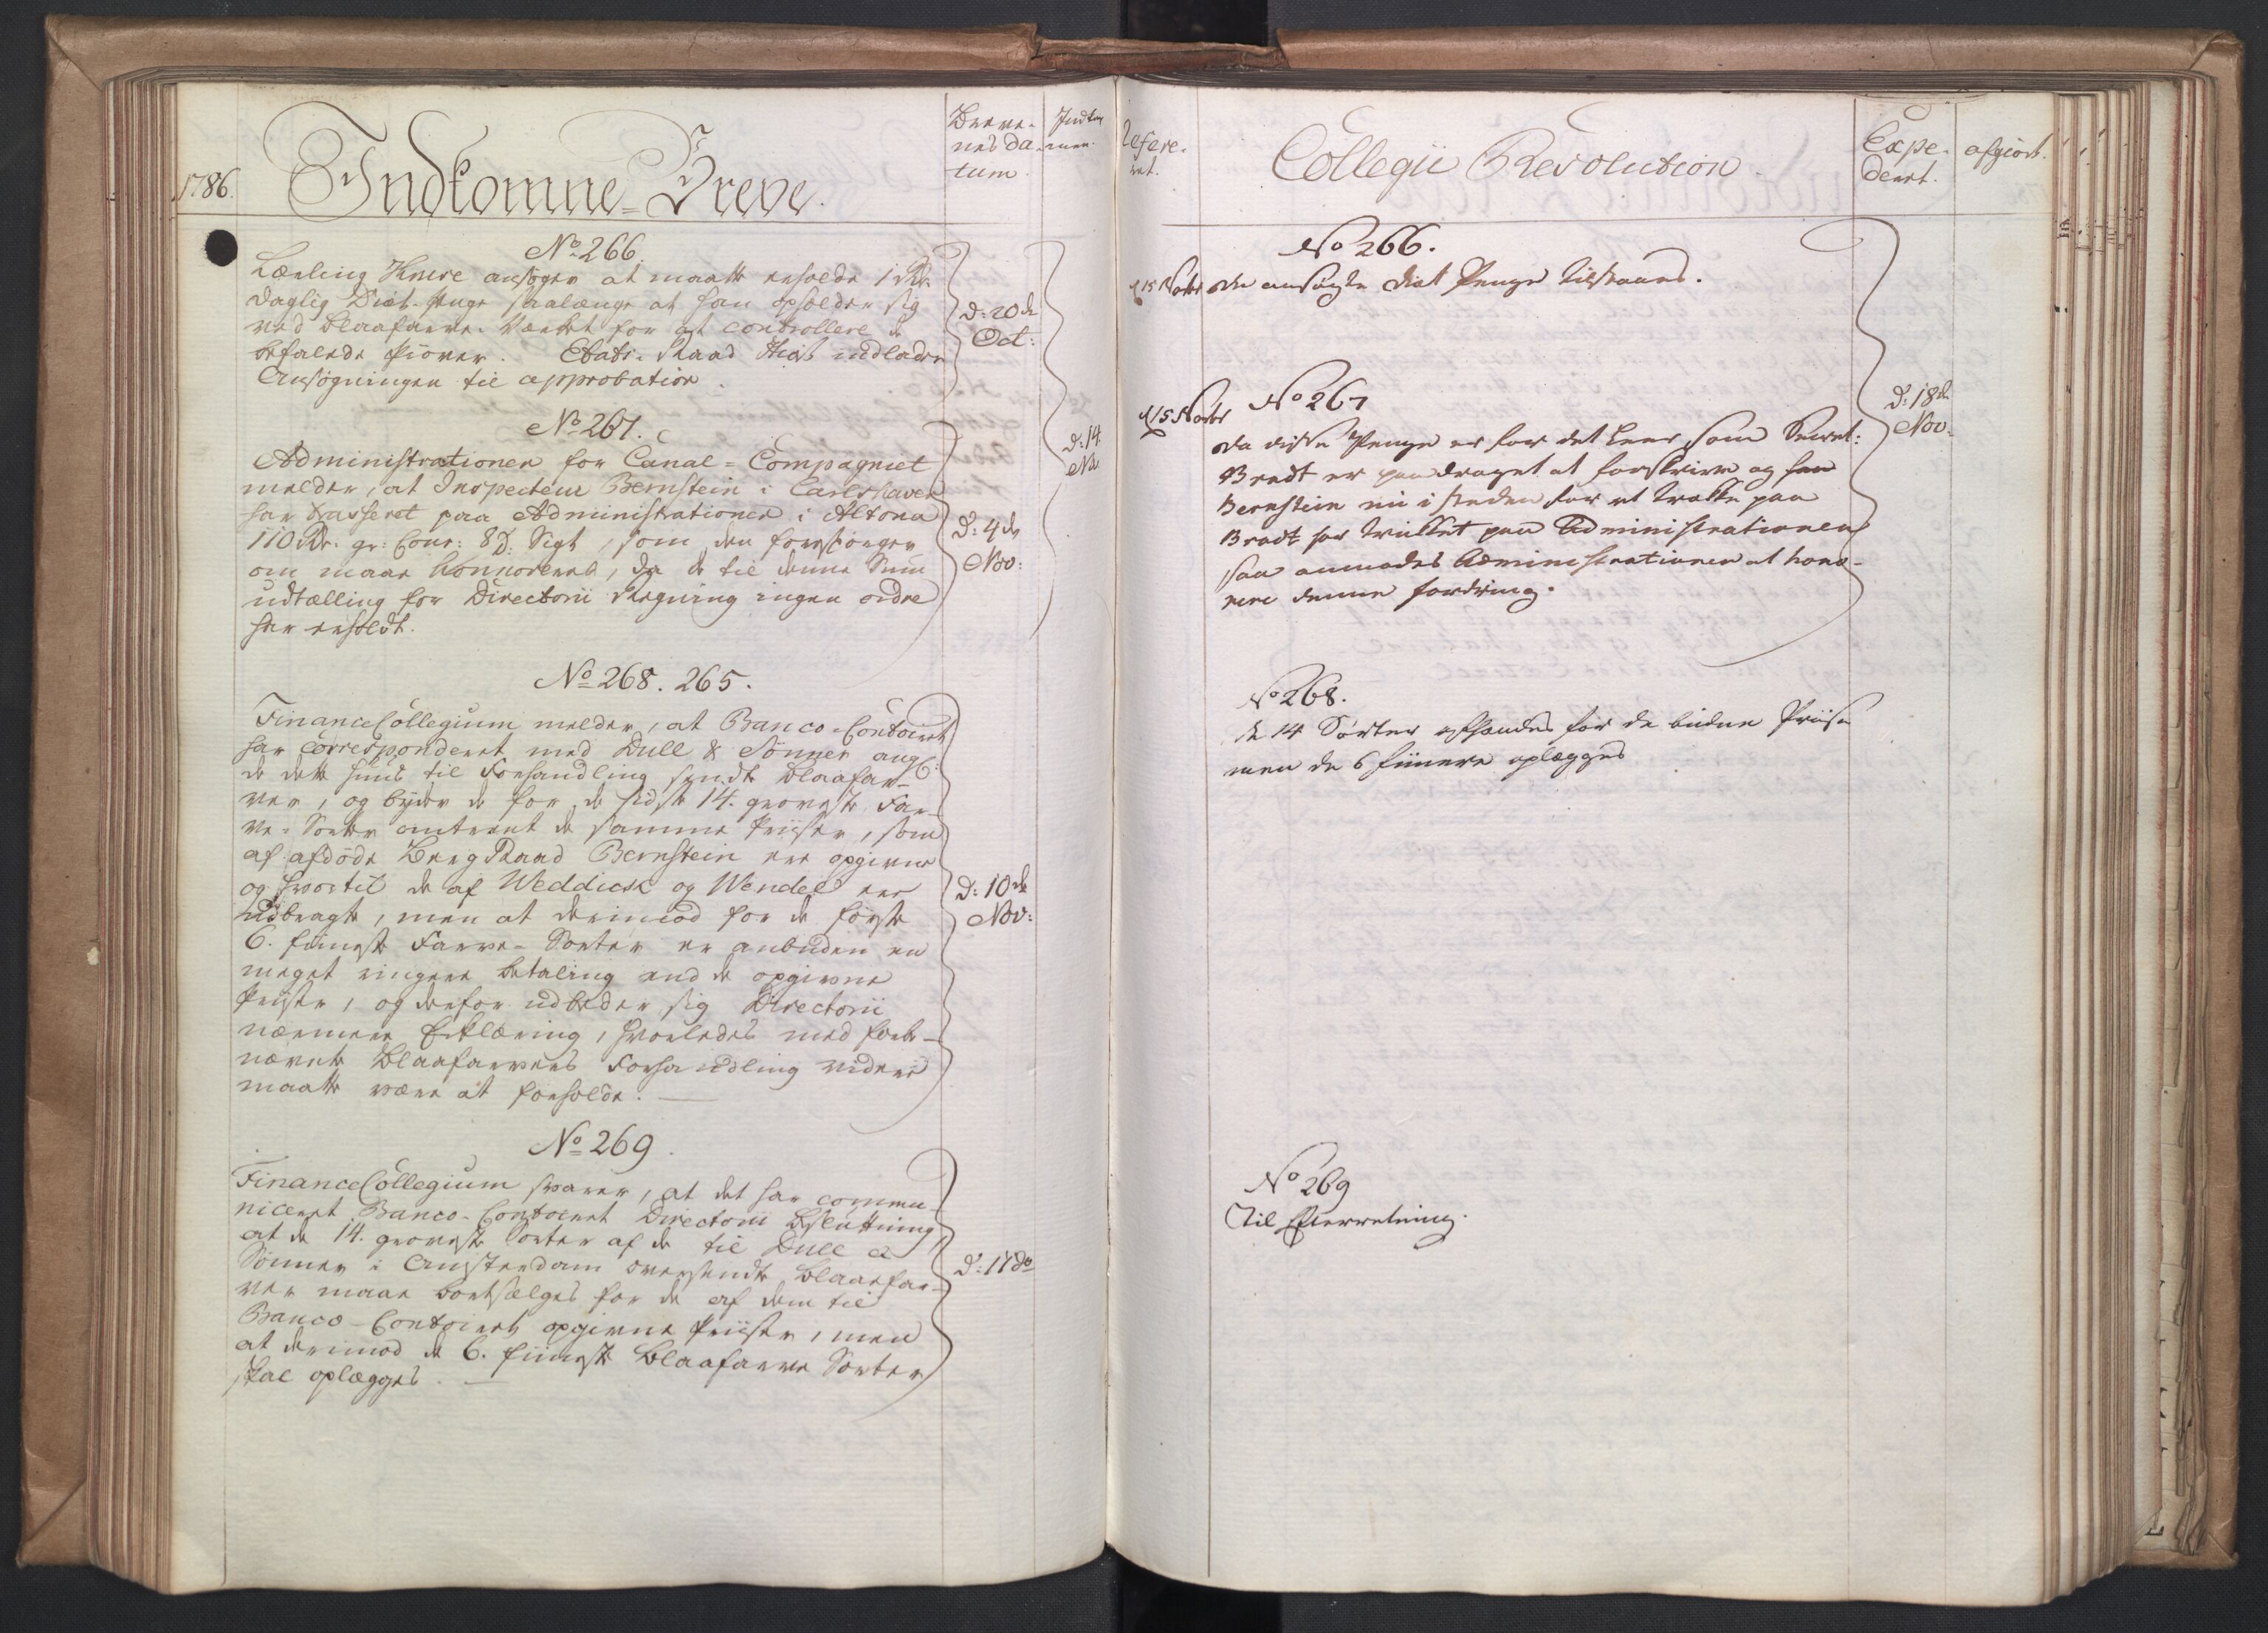 1786.
Indkomne-Breve.
Breve-
nes Da-
tum.
Indkom
men.
No 266.
Lærling Knere ansøger at maatte erholde 1 Rdr.
daglig Diæt-Penge saalænge at han opholder sig
ved Blaafarve-Værket for at controllere de
befalede Prøver. Etats-Raad Hiort indlader
Ansøgningen til approbation.
D: 20de
Oct:
No 267.
Administrationen for Canal-Compagniet
melder, at Inspecteur Bernstein i Carlshaven
har trasseret paa Administrationen i Altona
110 Rdr. gr: Cour: 8 D: Sigt, som den forespørger
om maae honnoreres, da de til denne Sum
udtælling for Directorii Regning ingen ordre
har erholdt.
D: 4de
Nov:
D: 14
Nov
No 268. 265.
FinanceCollegium melder, at Banco-Contoiret
har correspondert med Dull & Sønner ang:
de dette Huus til Forhandling sendte Blaafar-
ver, og byder de for de sidste 14. groveste Far-
ve-Sorter omtrent de samme Priiser, som
af afdøde BergRaad Bernstein ere opgivne
og hvortil de af Weddick og Wendel ere
udbragte, men at derimod for de første
6. fiineste Farve-Sorter er anbuden en
meget ringere betaling end de opgivne
Priiser, og derfor udbeder sig Directorii
nærmere Erklæring, hvorledes med forbe-
nævnte Blaafarvers Forhandling videre
maatte være at forholde.
D: 10de
Nov:
No 269.
FinanceCollegium svarer, at det har commu-
niceret Banco-Contoiret Directorii Beslutning,
at de 14. groveste Sorter af de til Dull &
Sønner i Amsterdam oversendte Blaaefar-
ver maae bortsælges for de af dem til
Banco-Contoiret opgivne Priiser, men
at derimod de 6. fiineste Blaafarve Sorter
skal oplægges.
D: 17do
Refere-
ret.
Collegii Resolution.
Expe-
deret.
afgiort.
No 266.
d 15 Novbr
De ansøgte Diæt Penge tilstaaes.
No 267
d 15 Novbr
Da disse Penge er for det Leer som Secret:
Bradt er paadraget at forskrive og hr
Bernstein nu i steden for at trække paa
Bradt har trukket paa Administrationen
saa anmodes Administrationen at hono-
rere denne fordring.
D: 18de
Nov:
No 268.
de 14 Sorter afhændes for de budne Priise
men de 6 fiinere oplægges
No 269
Til Efterretning.